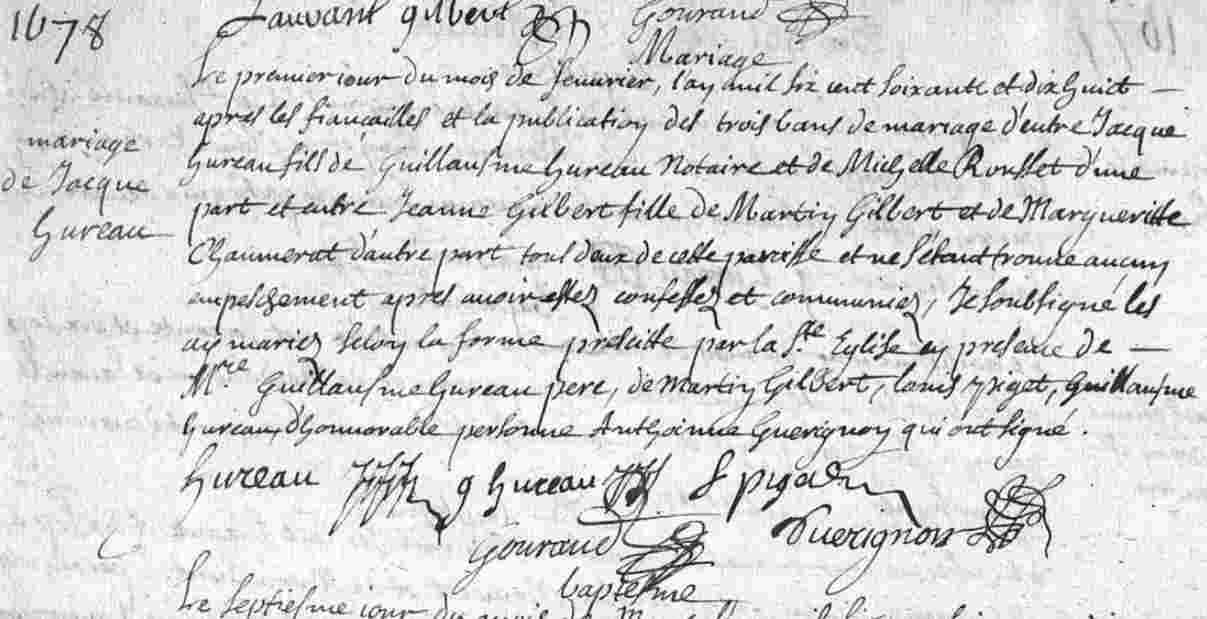 1678
Lauvant gilbert Gouraud
Mariage
Le premier iour du mois de Jenurier, l'an mil six cent soixante et dix huict —
apres les fiancailles et la publication des trois bans de mariage d'entre Jacque
hureau fils de Guillausme hureau Notaire et de Michelle Rousset d'une
part et entre Jeanne Gilbert fille de Martin Gilbert et de Margueritte
Chaumerat d'autre part tous deux de cette paroisse et ne s'étant trouué aucun
empeschement apres auoir estez confessez et communiez, Je soubsigné les
ay mariez selon la forme prescitte par la S.te Eglise en presence de —
M.re Guillausme hureau pere, de Martin Gilbert, louis Piget, Guillausme
hureau, d'honnorable personne Anthoinne Guerignon qui ont signé.
mariage
de Jacque
hureau
hureau g hureau
Gouraud Guerignon
baptesme
Le septiesme iour du mois de